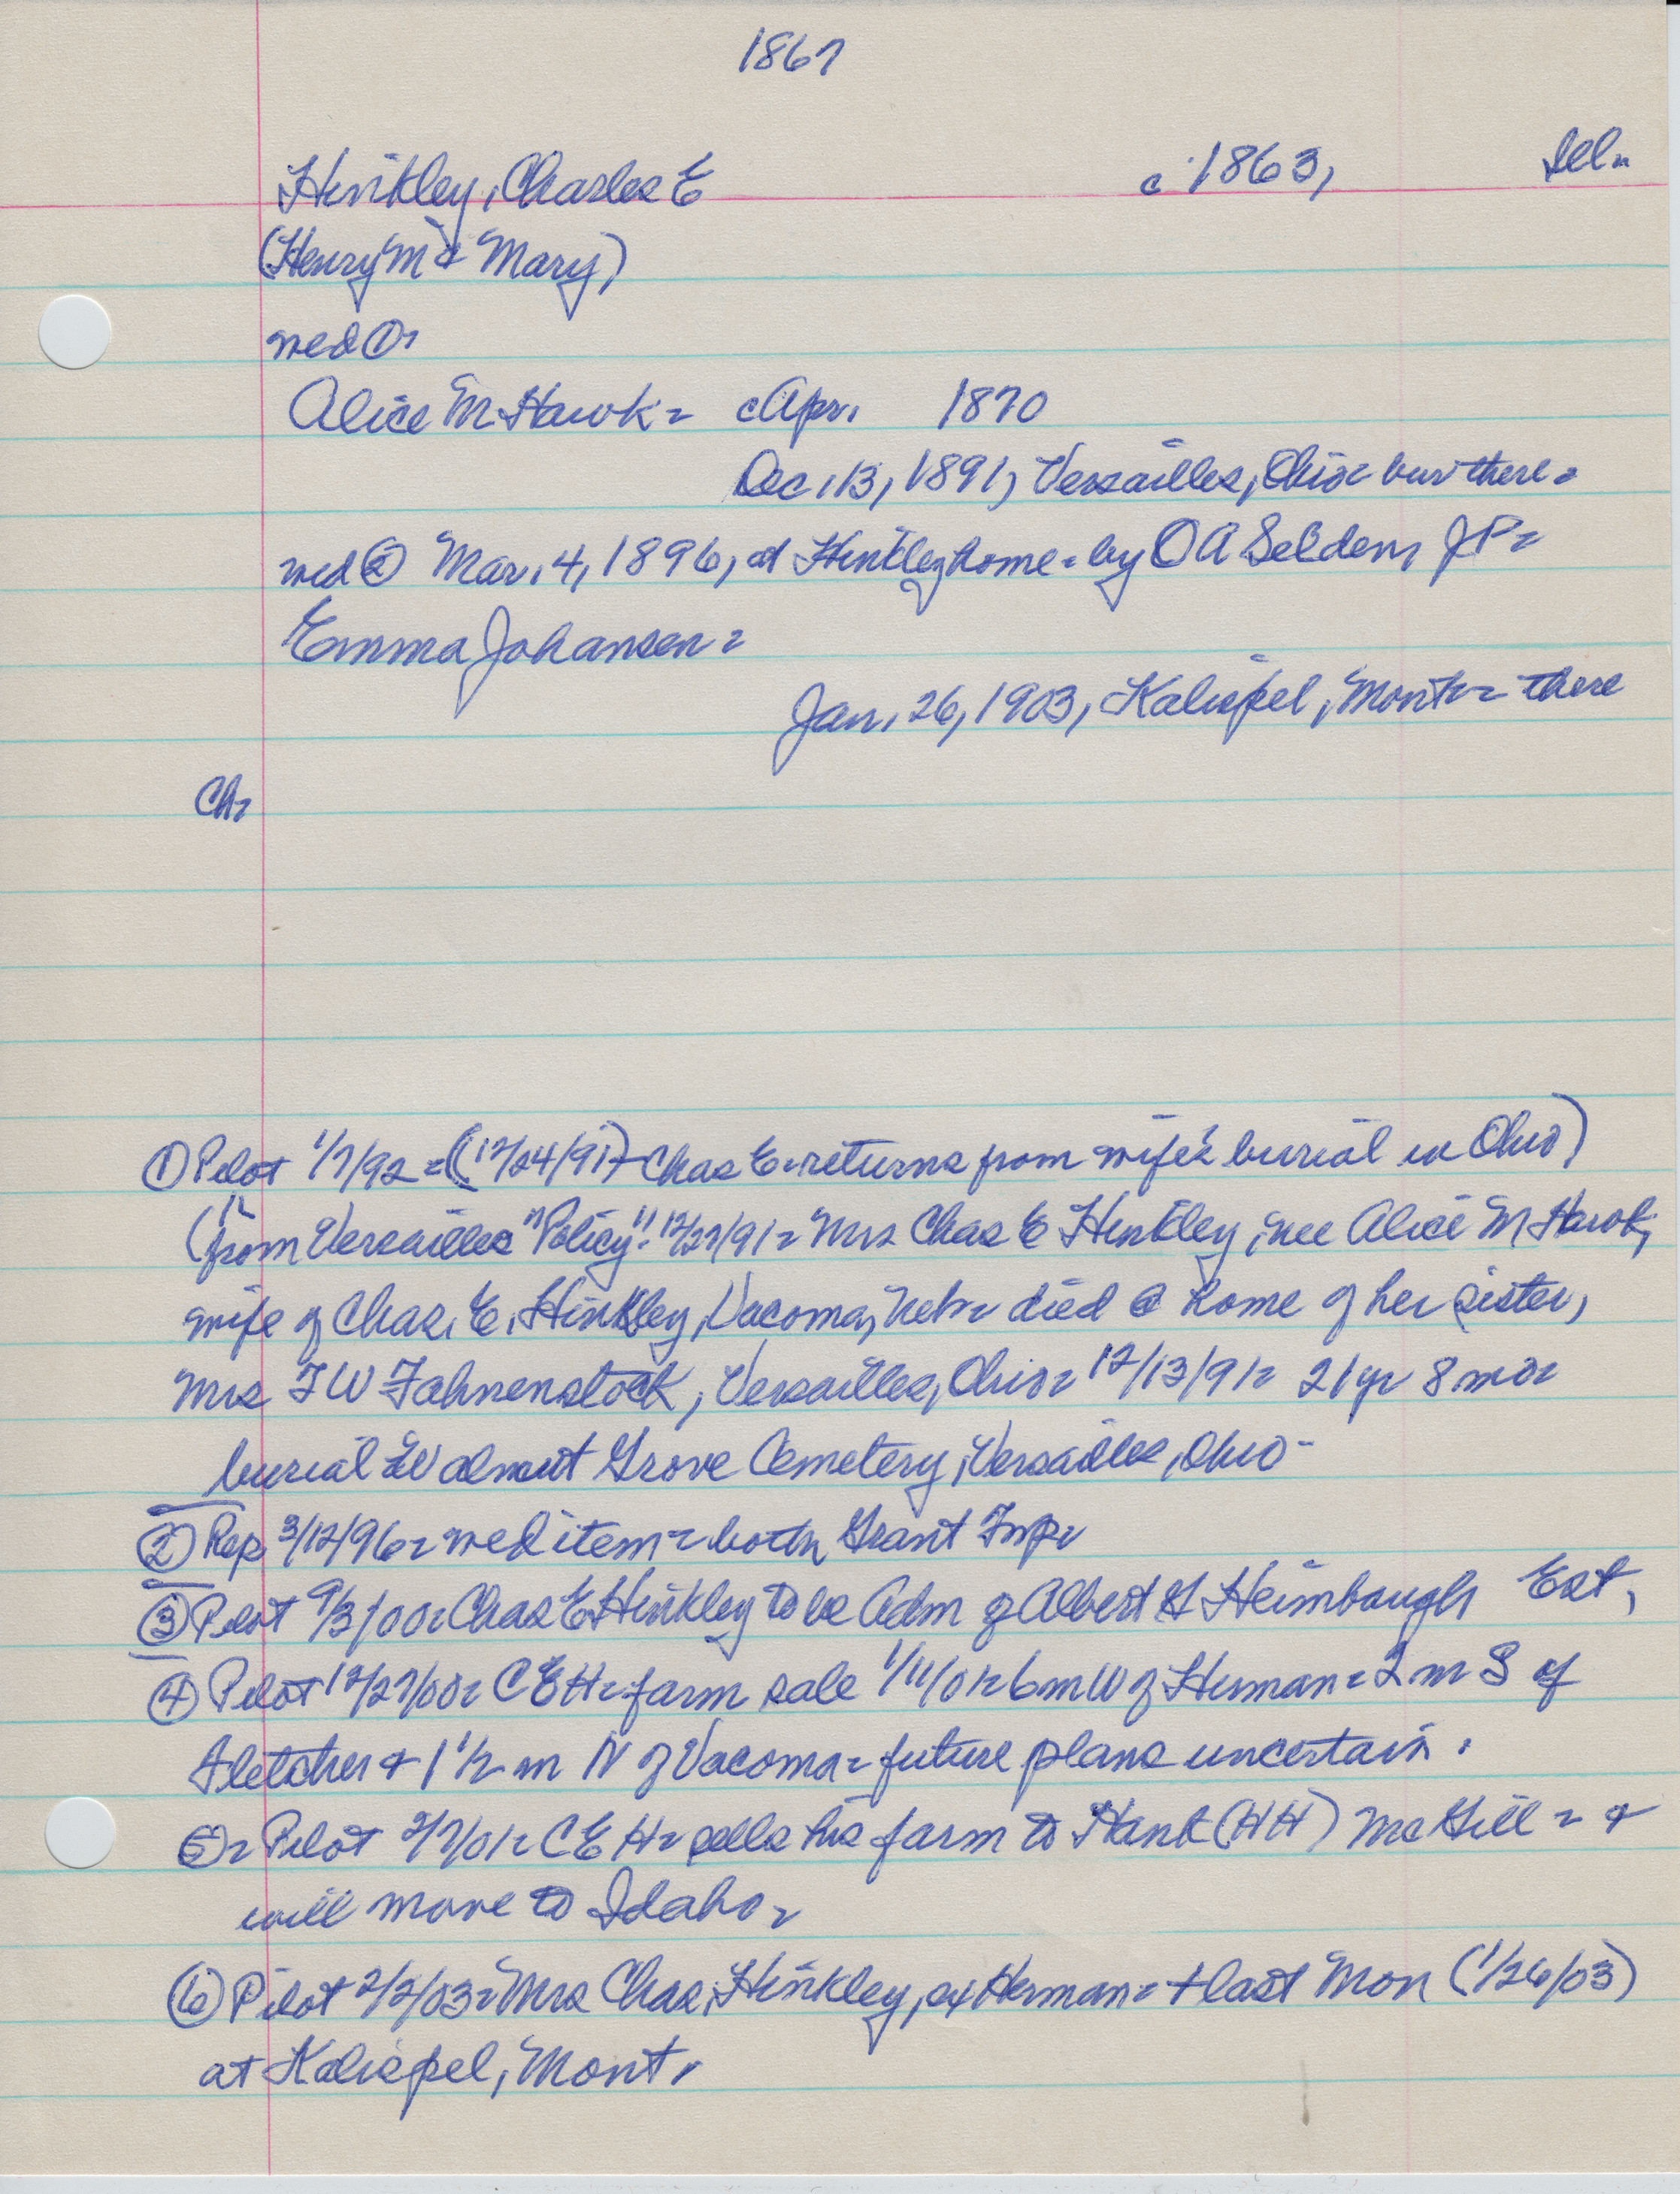 1867
Hinkley, Charles E c 1863, Ill-
(Henry M & Mary)
wed ①-
Alice M Hawk- c Apr. 1870
Dec. 13, 1891, Versailles, Ohio- bur there-
wed ② Mar. 4, 1896, at Hinkley home- by O A Selden, JP-
Emma Johansen-
Jan. 26, 1903, Kalispel, Mont- there
Ch-
① Pilot 1/7/92 = ((12/24/91)- Chas E- returns from wife's burial in Ohio)
(from Versailles "Policy" 12/27/91- Mrs Chas E Hinkley, nee Alice M Hawk,
wife of Chas. E. Hinkley, Vacoma, Neb- died @ home of her sister,
Mrs F W Fahnenstock, Versailles, Ohio- 12/13/91- 21 yr 8 mo-
burial Walnut Grove Cemetery, Versailles, Ohio-
② Rep 3/12/96- wed item- both Grant Twp-
③ Pilot 9/3/00- Chas E Hinkley to be Adm of Albert Heimbaugh Est,
④ Pilot 12/27/00- C E H- farm sale 1/11/01- 6 m W of Herman- 2 m S of
Fletcher & 1 1/2 m N of Vacoma- future plans uncertain.
⑤- Pilot 2/7/01- C E H- sells his farm to Hank (HH) McGill- &
will move to Idaho-
⑥ Pilot 2/2/03- Mrs Chas. Hinkley, ex Herman- + last Mon (1/26/03)
at Kalispel, Mont.